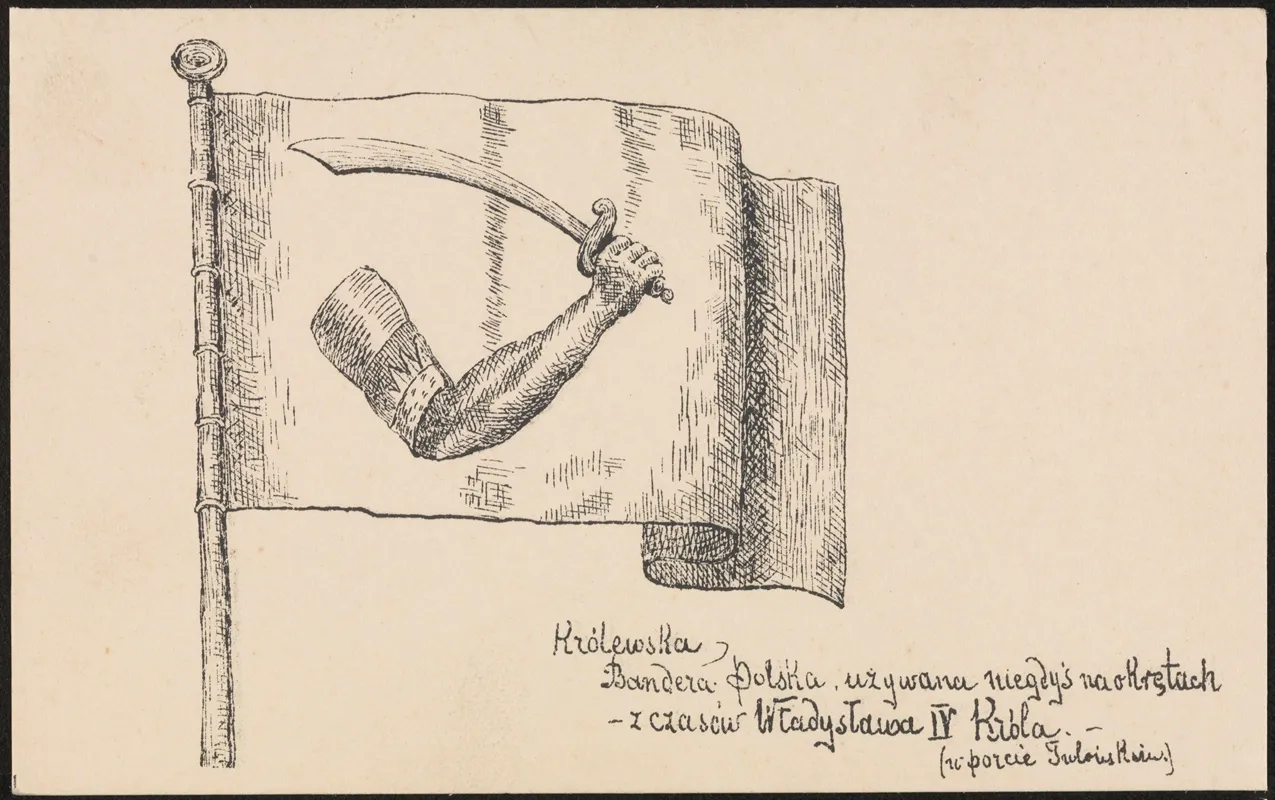 Królewska
Bandera Polska, używana niegdyś na okrętach
- z czasów Władysława IV Króla. -
(w porcie Tulońskim.)